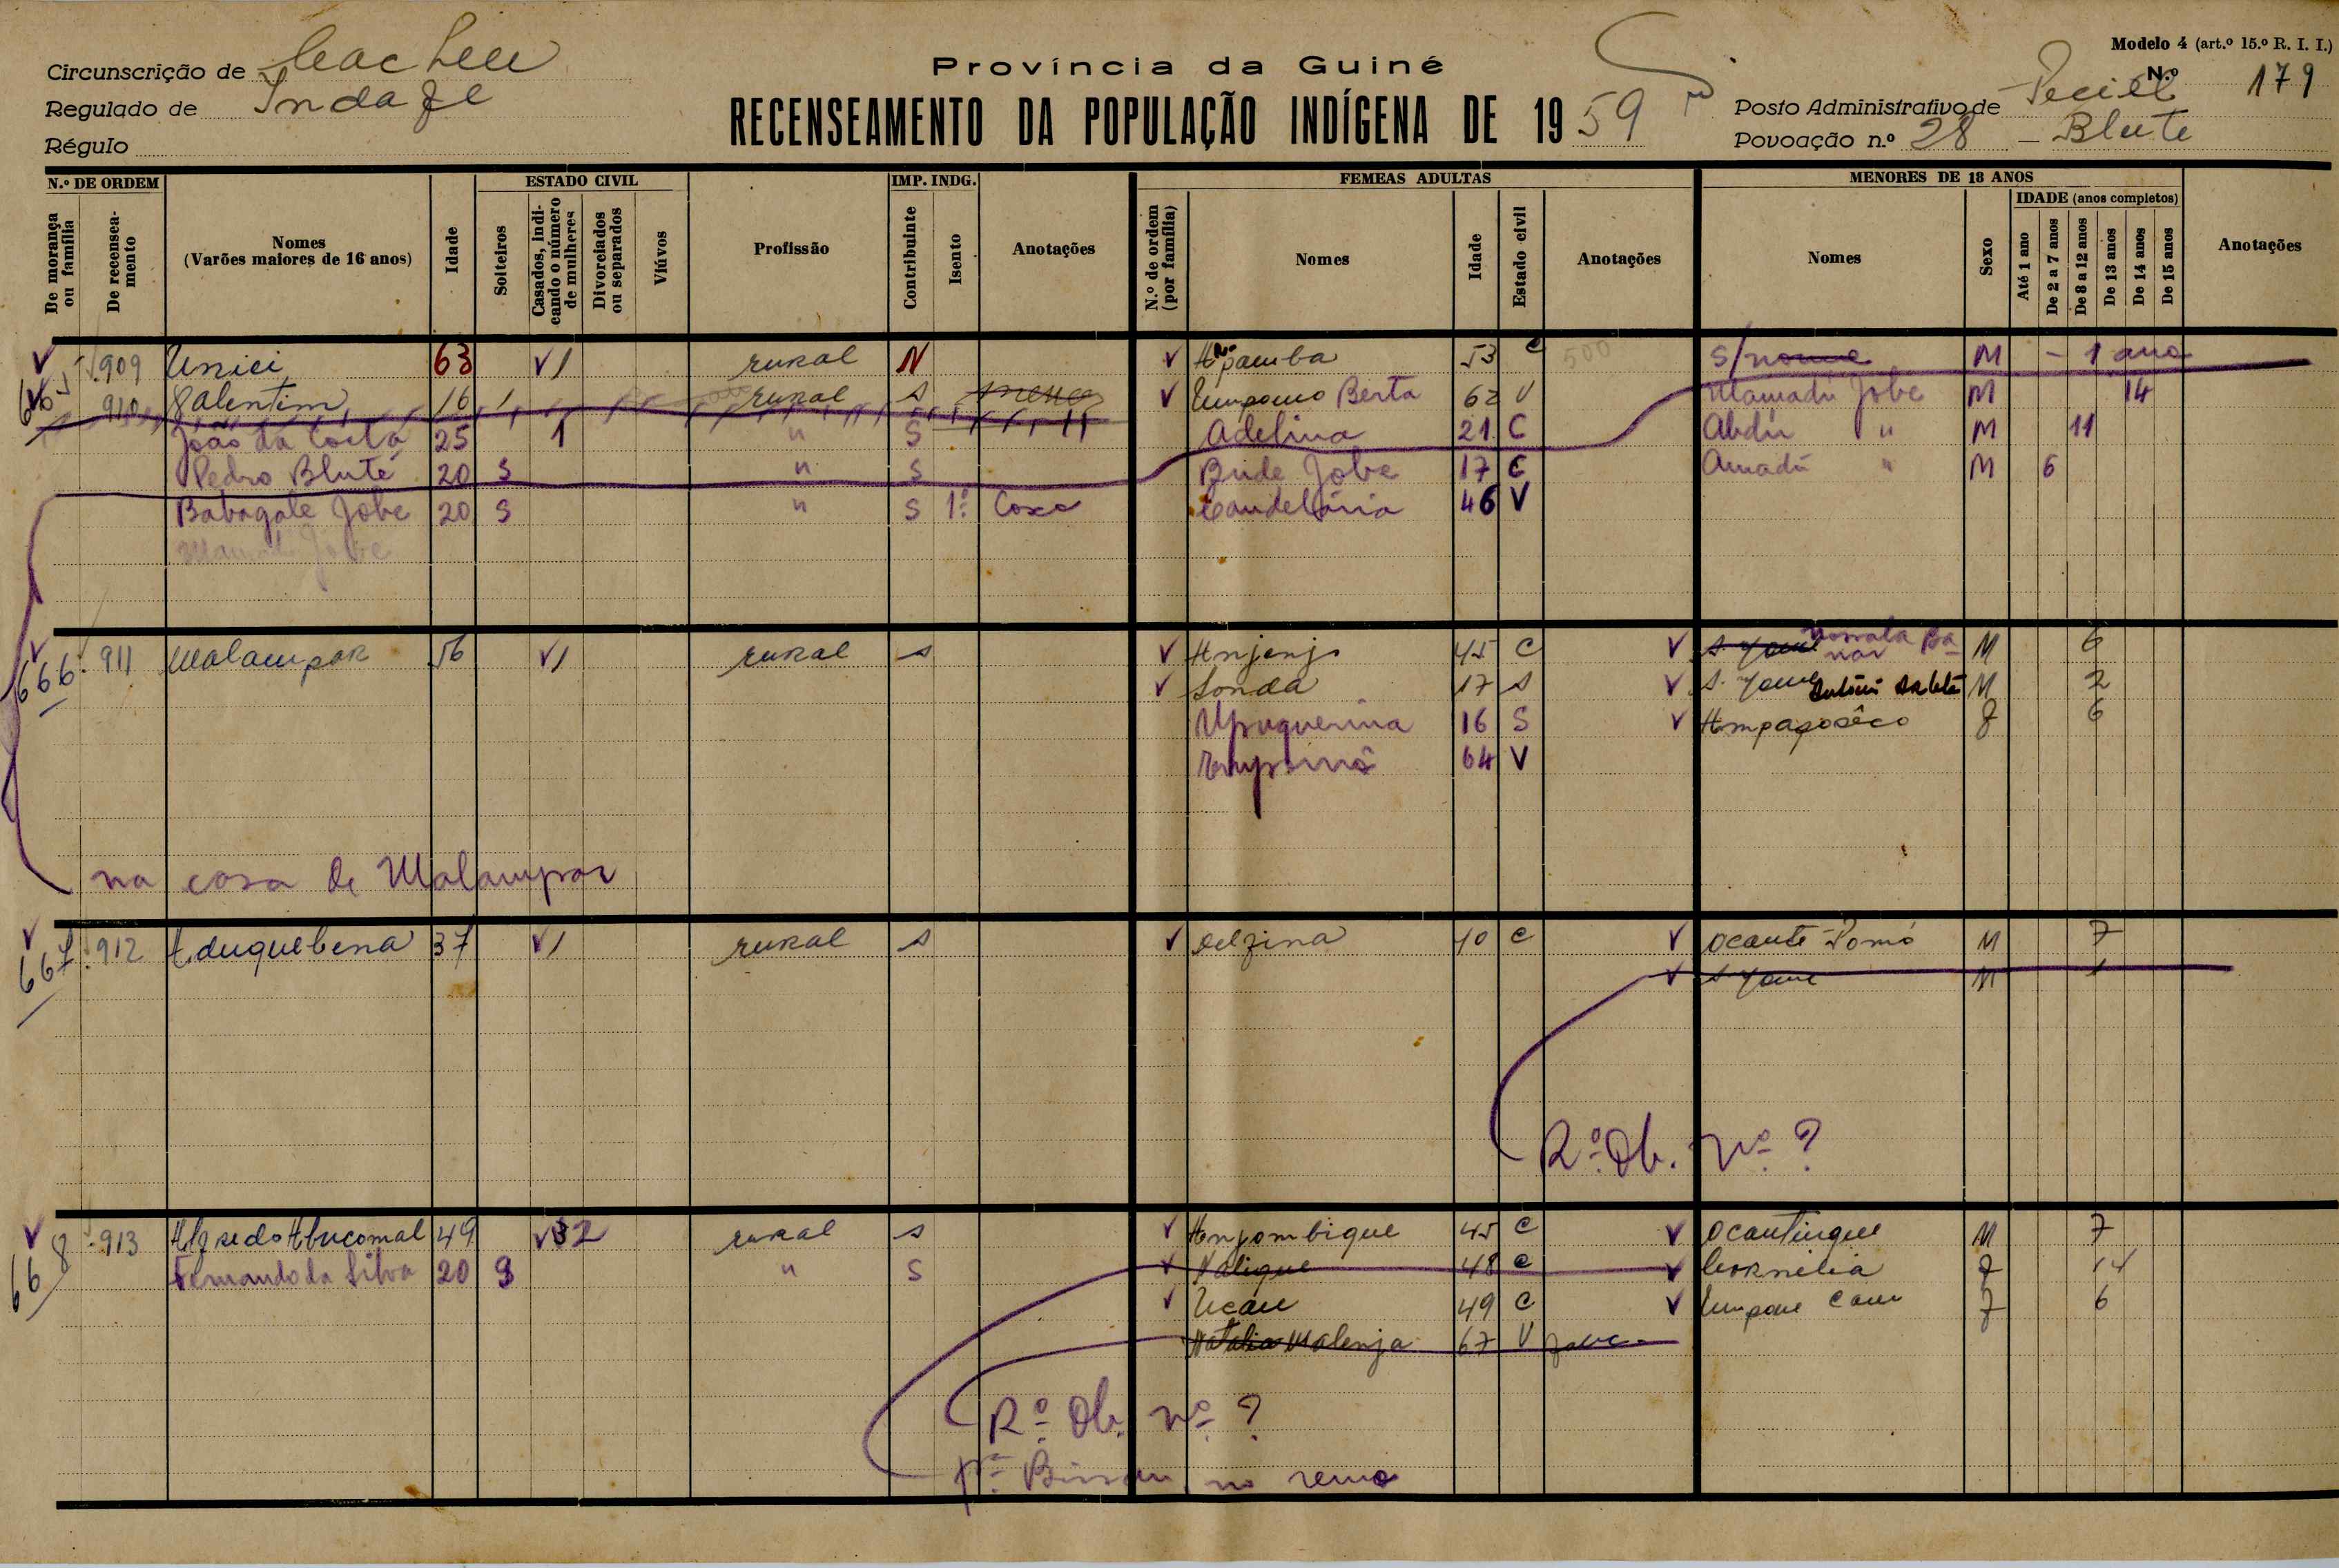 Modelo 4 (art.º 15.º R. I. I.)
Circunscrição de Cacheu
Província da Guiné
N.º 179
Regulado de Indafe
RECENSEAMENTO DA POPULAÇÃO INDÍGENA DE 1959
Posto Administrativo de
Régulo
Povoação n.º 28 – Blute
N.º DE ORDEM
De morança ou família
De recenseamento
Nomes
(Varões maiores de 16 anos)
Idade
ESTADO CIVIL
Solteiros
Casados, indicando o número de mulheres
Divorciados ou separados
Viúvos
Profissão
IMP. INDG.
Contribuinte
Isento
Anotações
FEMEAS ADULTAS
N.º de ordem (por família)
Nomes
Idade
Estado civil
Anotações
MENORES DE 18 ANOS
Nomes
Sexo
IDADE (anos completos)
Até 1 ano
De 2 a 7 anos
De 8 a 12 anos
De 13 anos
De 14 anos
De 15 anos
Anotações
665 909 Unici 63 1 rural N 53 C 500 s/nome M – 1 ano
910 Valentim 16 1 rural s Berta 62 V Mamadú Jobe M 14
João da Costa 25 1 " S Adelina 21 C Abdú " M 11
Pedro Bluté 20 S " S Bude Jobe 17 C Amadú " M 6
Babagale Jobe 20 S " S 1º Coxo Candelária 46 V
Jobe
666 911 Malampar 56 1 rural s Anjenjo 45 C M 6
Sonda 17 s M 2
16 S Ampaposêco F 6
64 V
na casa de Malampar
667 912 Aduquebena 37 1 rural s Delzina 40 C Ocante Pomó M 7
s/ nome M 1
R.º Ob. Nº ?
668 913 Alfredo Abucomal 49 2 rural s Anjombique 45 C Ocantingue M 7
Fernando da Silva 20 S " S Nalique 48 C Cornélia F 14
Ucau 49 C F 6
Natalia Malenja 67 V
Rº Ob. nº ?
pª Bissau no remo